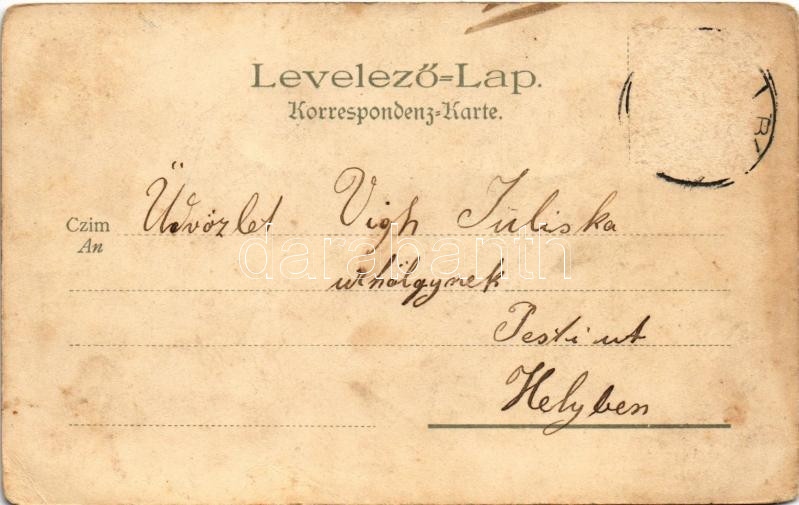 Levelező-Lap.
Korrespondenz-Karte.
Czim Üdvözlet Vigh Juliska
An
urhölgynek
Pesti ut
Helyben
darabanth